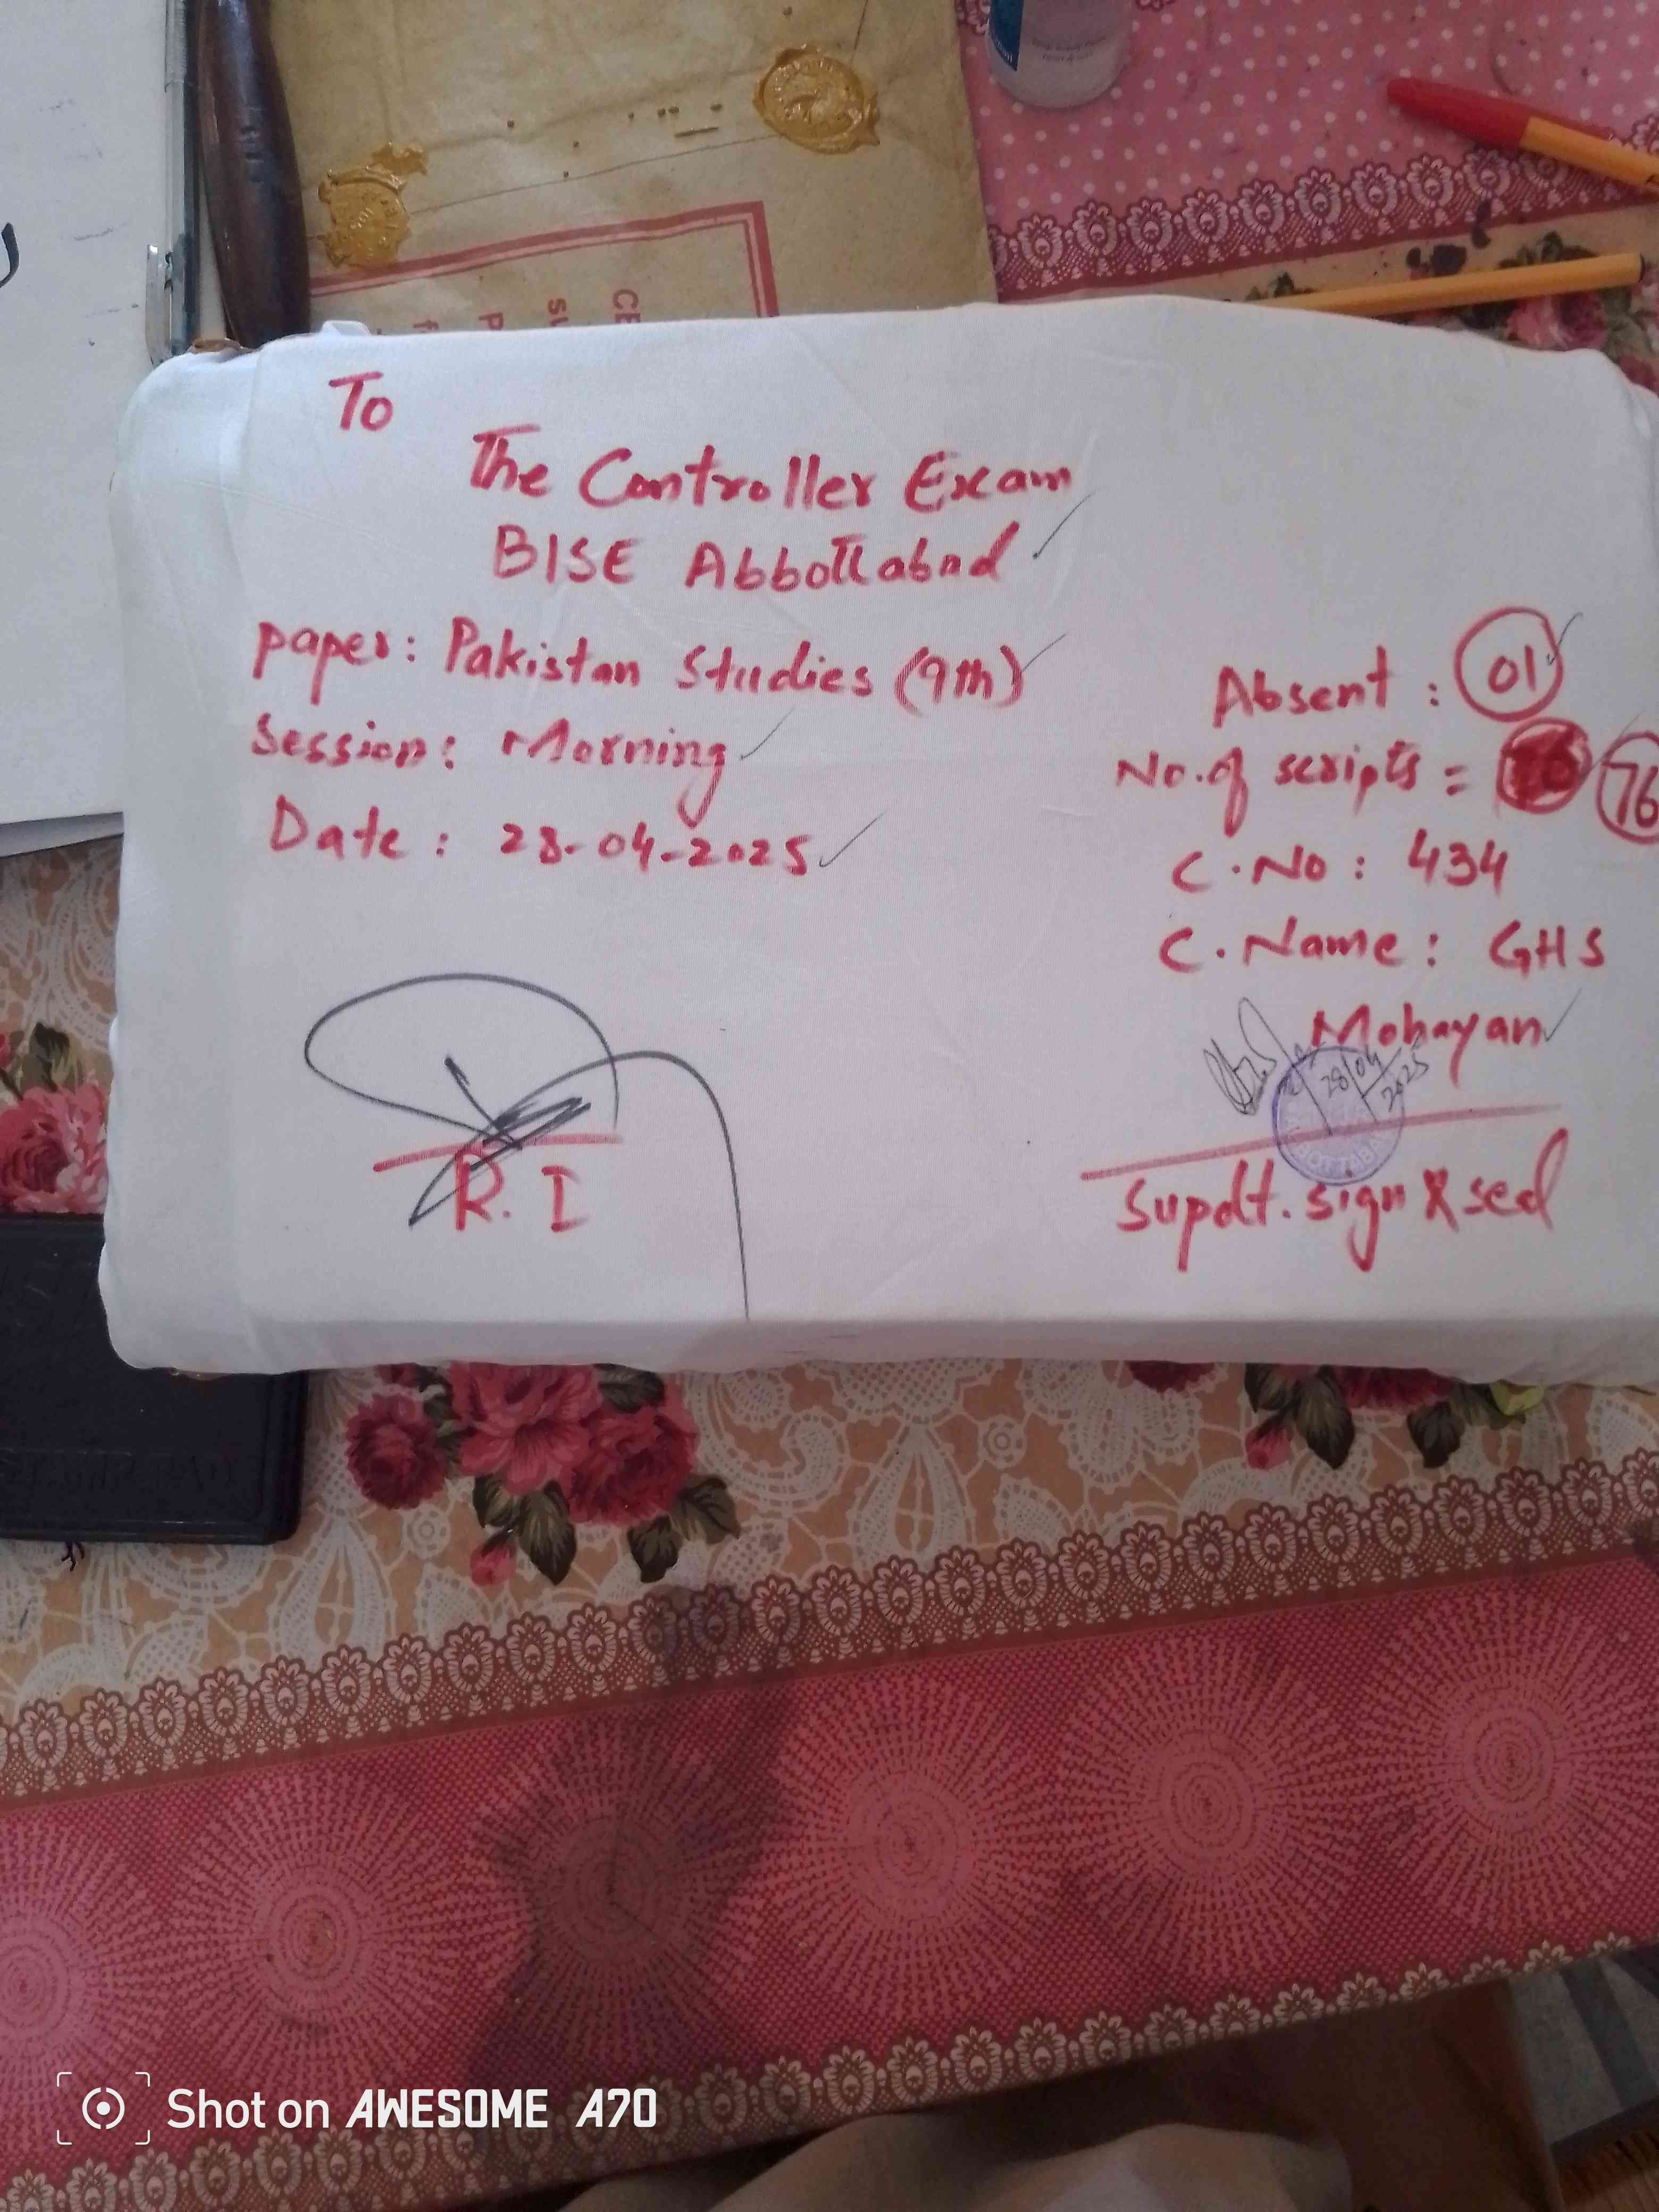 To
The Controller Exam
BISE Abbottabad
paper: Pakistan Studies (9th)
Session: Morning
Date: 28-04-2025
Absent: 01
No. of scripts = 76
C.No: 434
C.Name: GHS
Mohayan
28/04/2025
R. I
Supdt. sign & seal
Shot on AWESOME A70